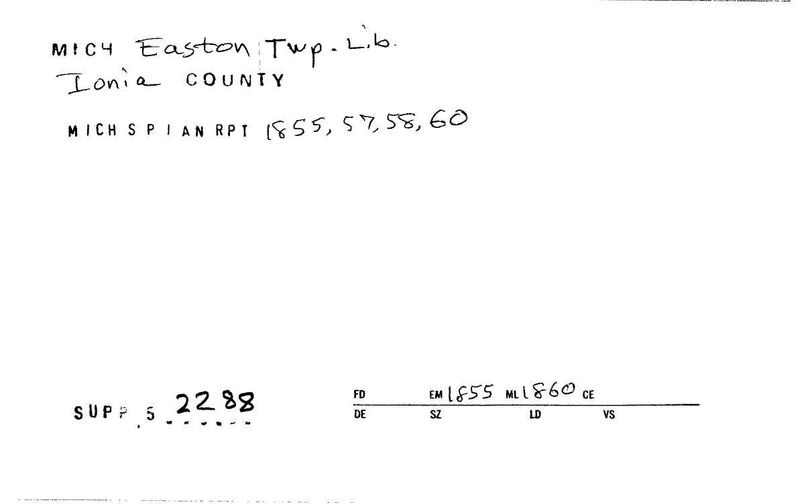 MICH Easton Twp. Lib.
Ionia COUNTY
MICH S P I AN RPT 1855, 57, 58, 60
SUPP 5 2288
FD EM 1855 ML 1860 CE
DE SZ LD VS